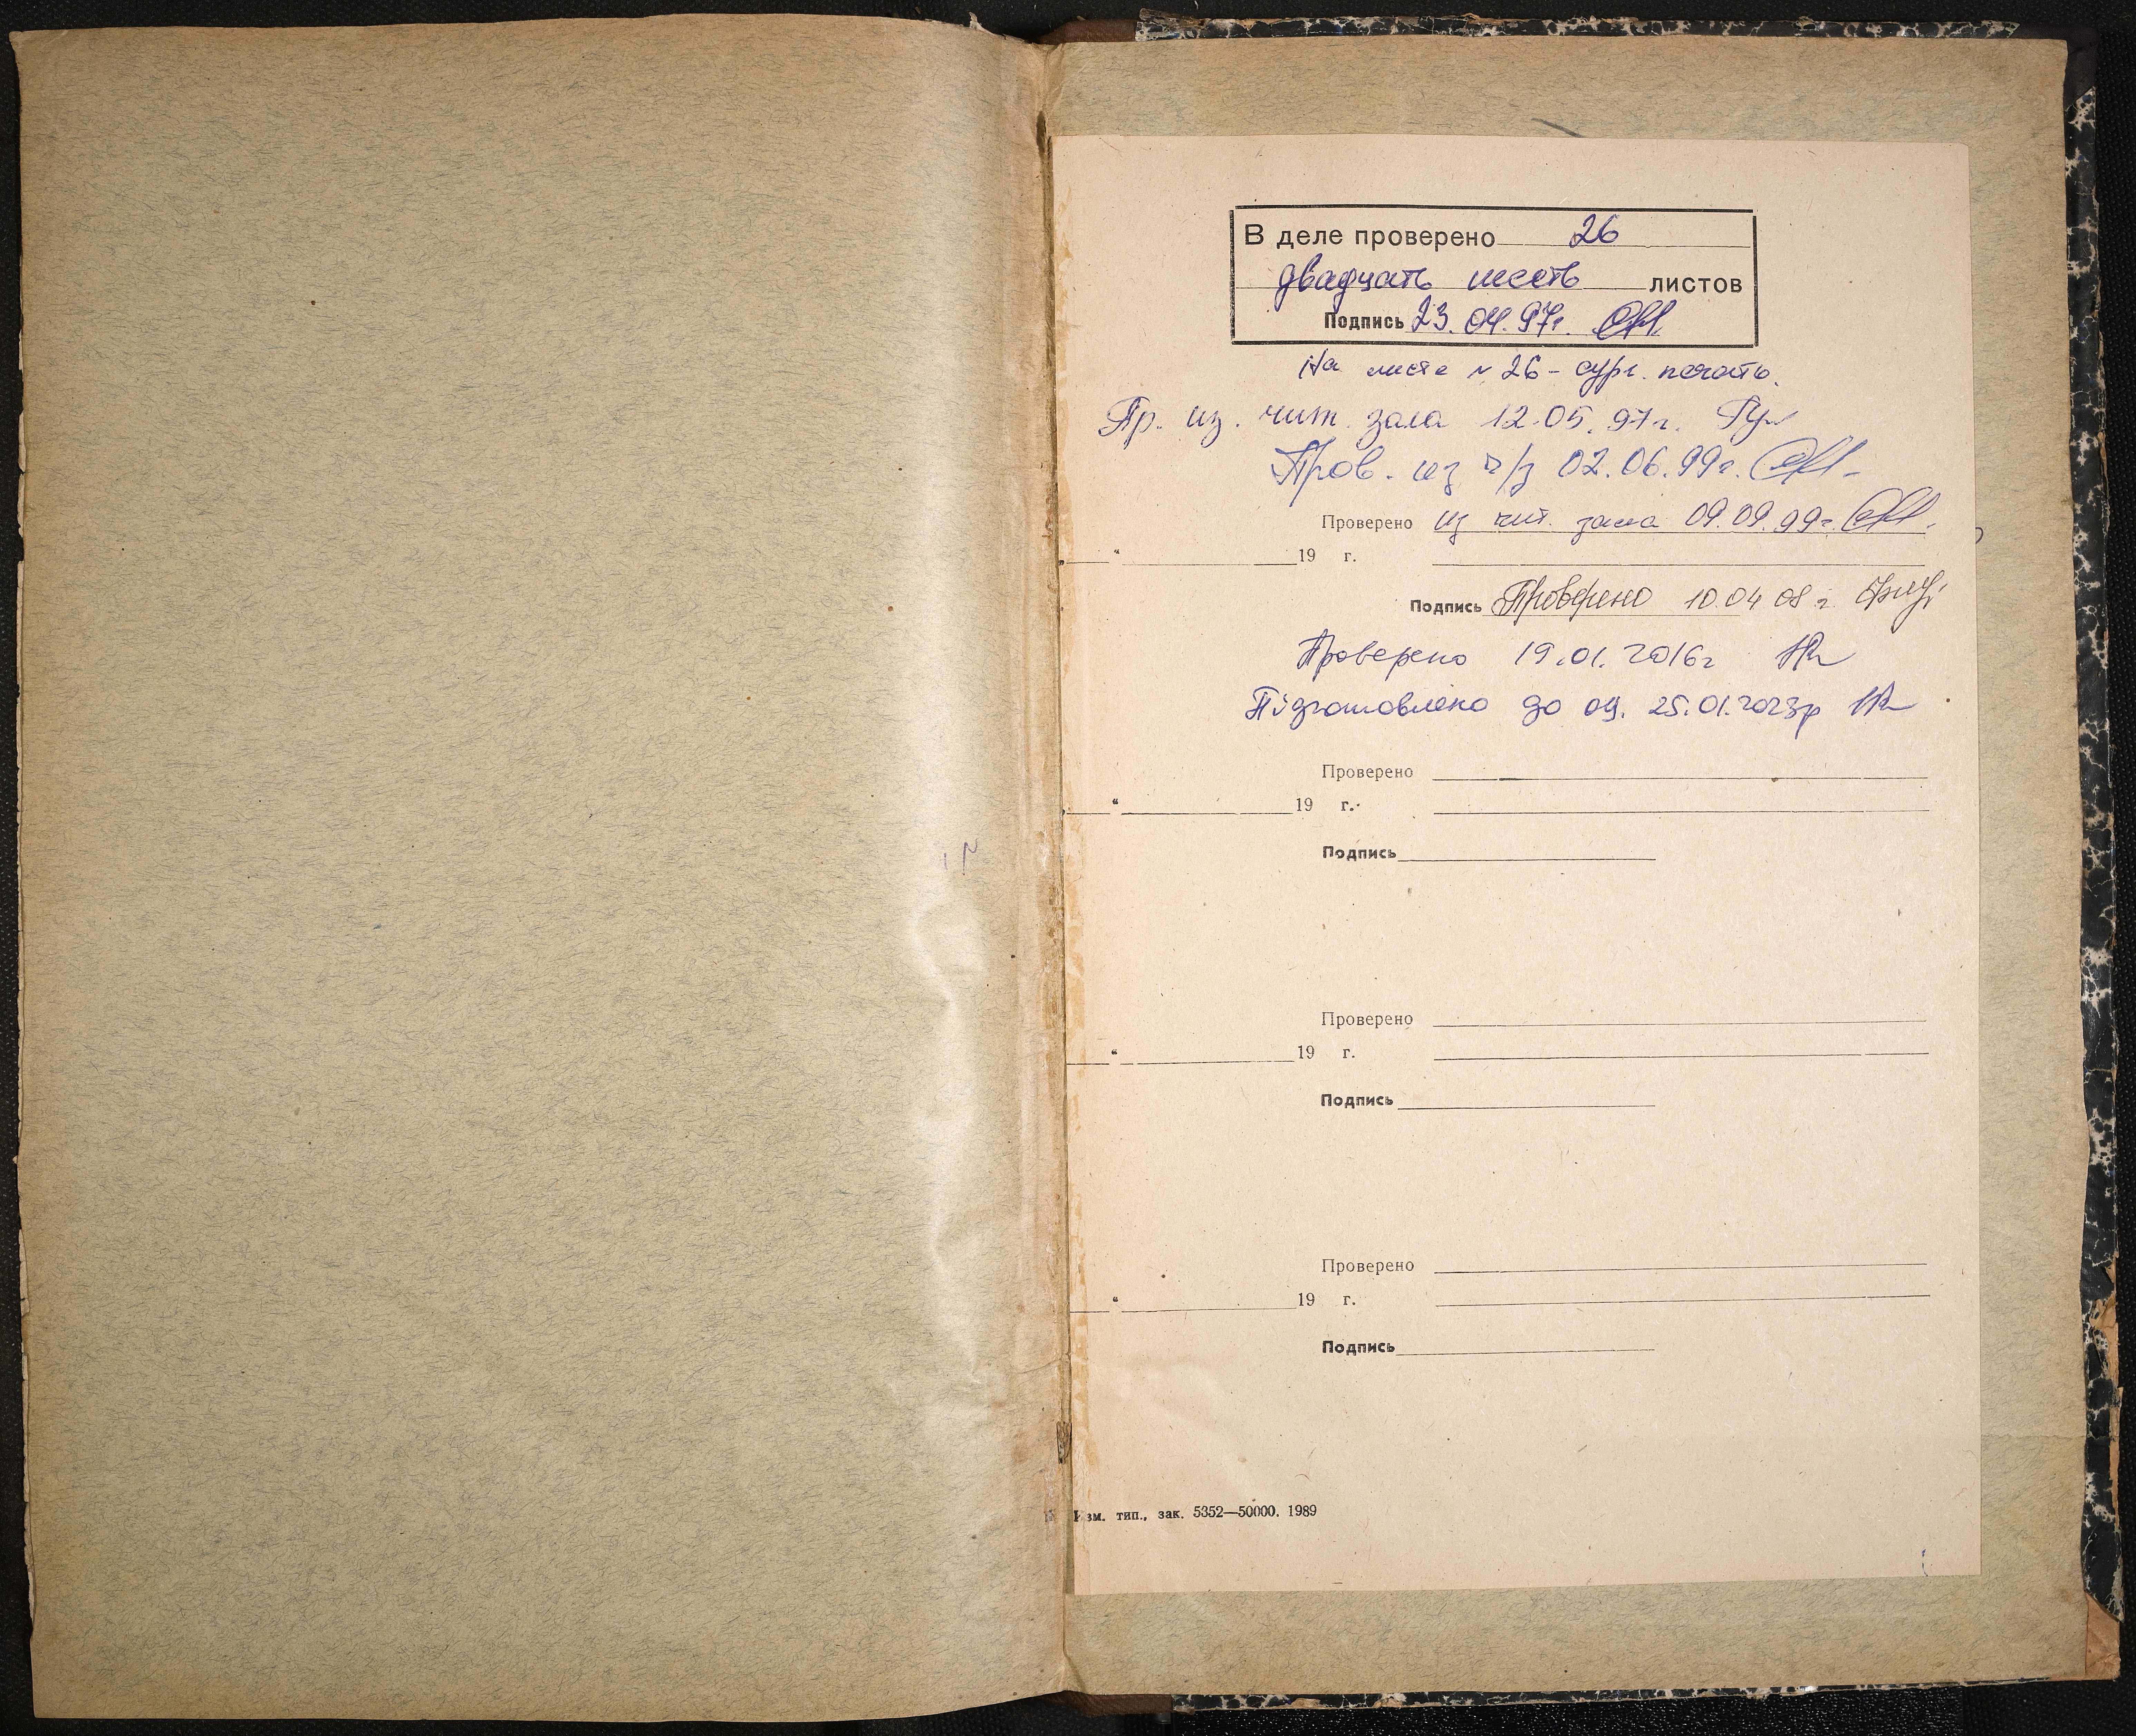 В деле проверено 26
двадцать шесть листов
Подпись 23.04.97г.
На листе № 26 - сург. печать.
Пр. из. чит. зала 12.05.97г.
Пров. из ч/з 02.06.99г.
Проверено из чит. зала 09.09.99г.
" 19 г.
Подпись Проверено 10.04 08 г.
Проверено 19.01.2016г
Підготовлено до оц. 25.01.2023р
Проверено
" 19 г.
Подпись
Проверено
" 19 г.
Подпись
Проверено
" 19 г.
Подпись
Изм. тип., зак. 5352—50000. 1989